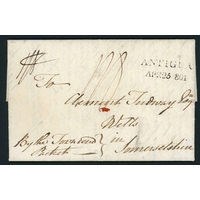 ANTIGUA
APR 25 801
To
Clement Tudway Esqr
Wells
in
Somersetshire
By the Townsend
Packet